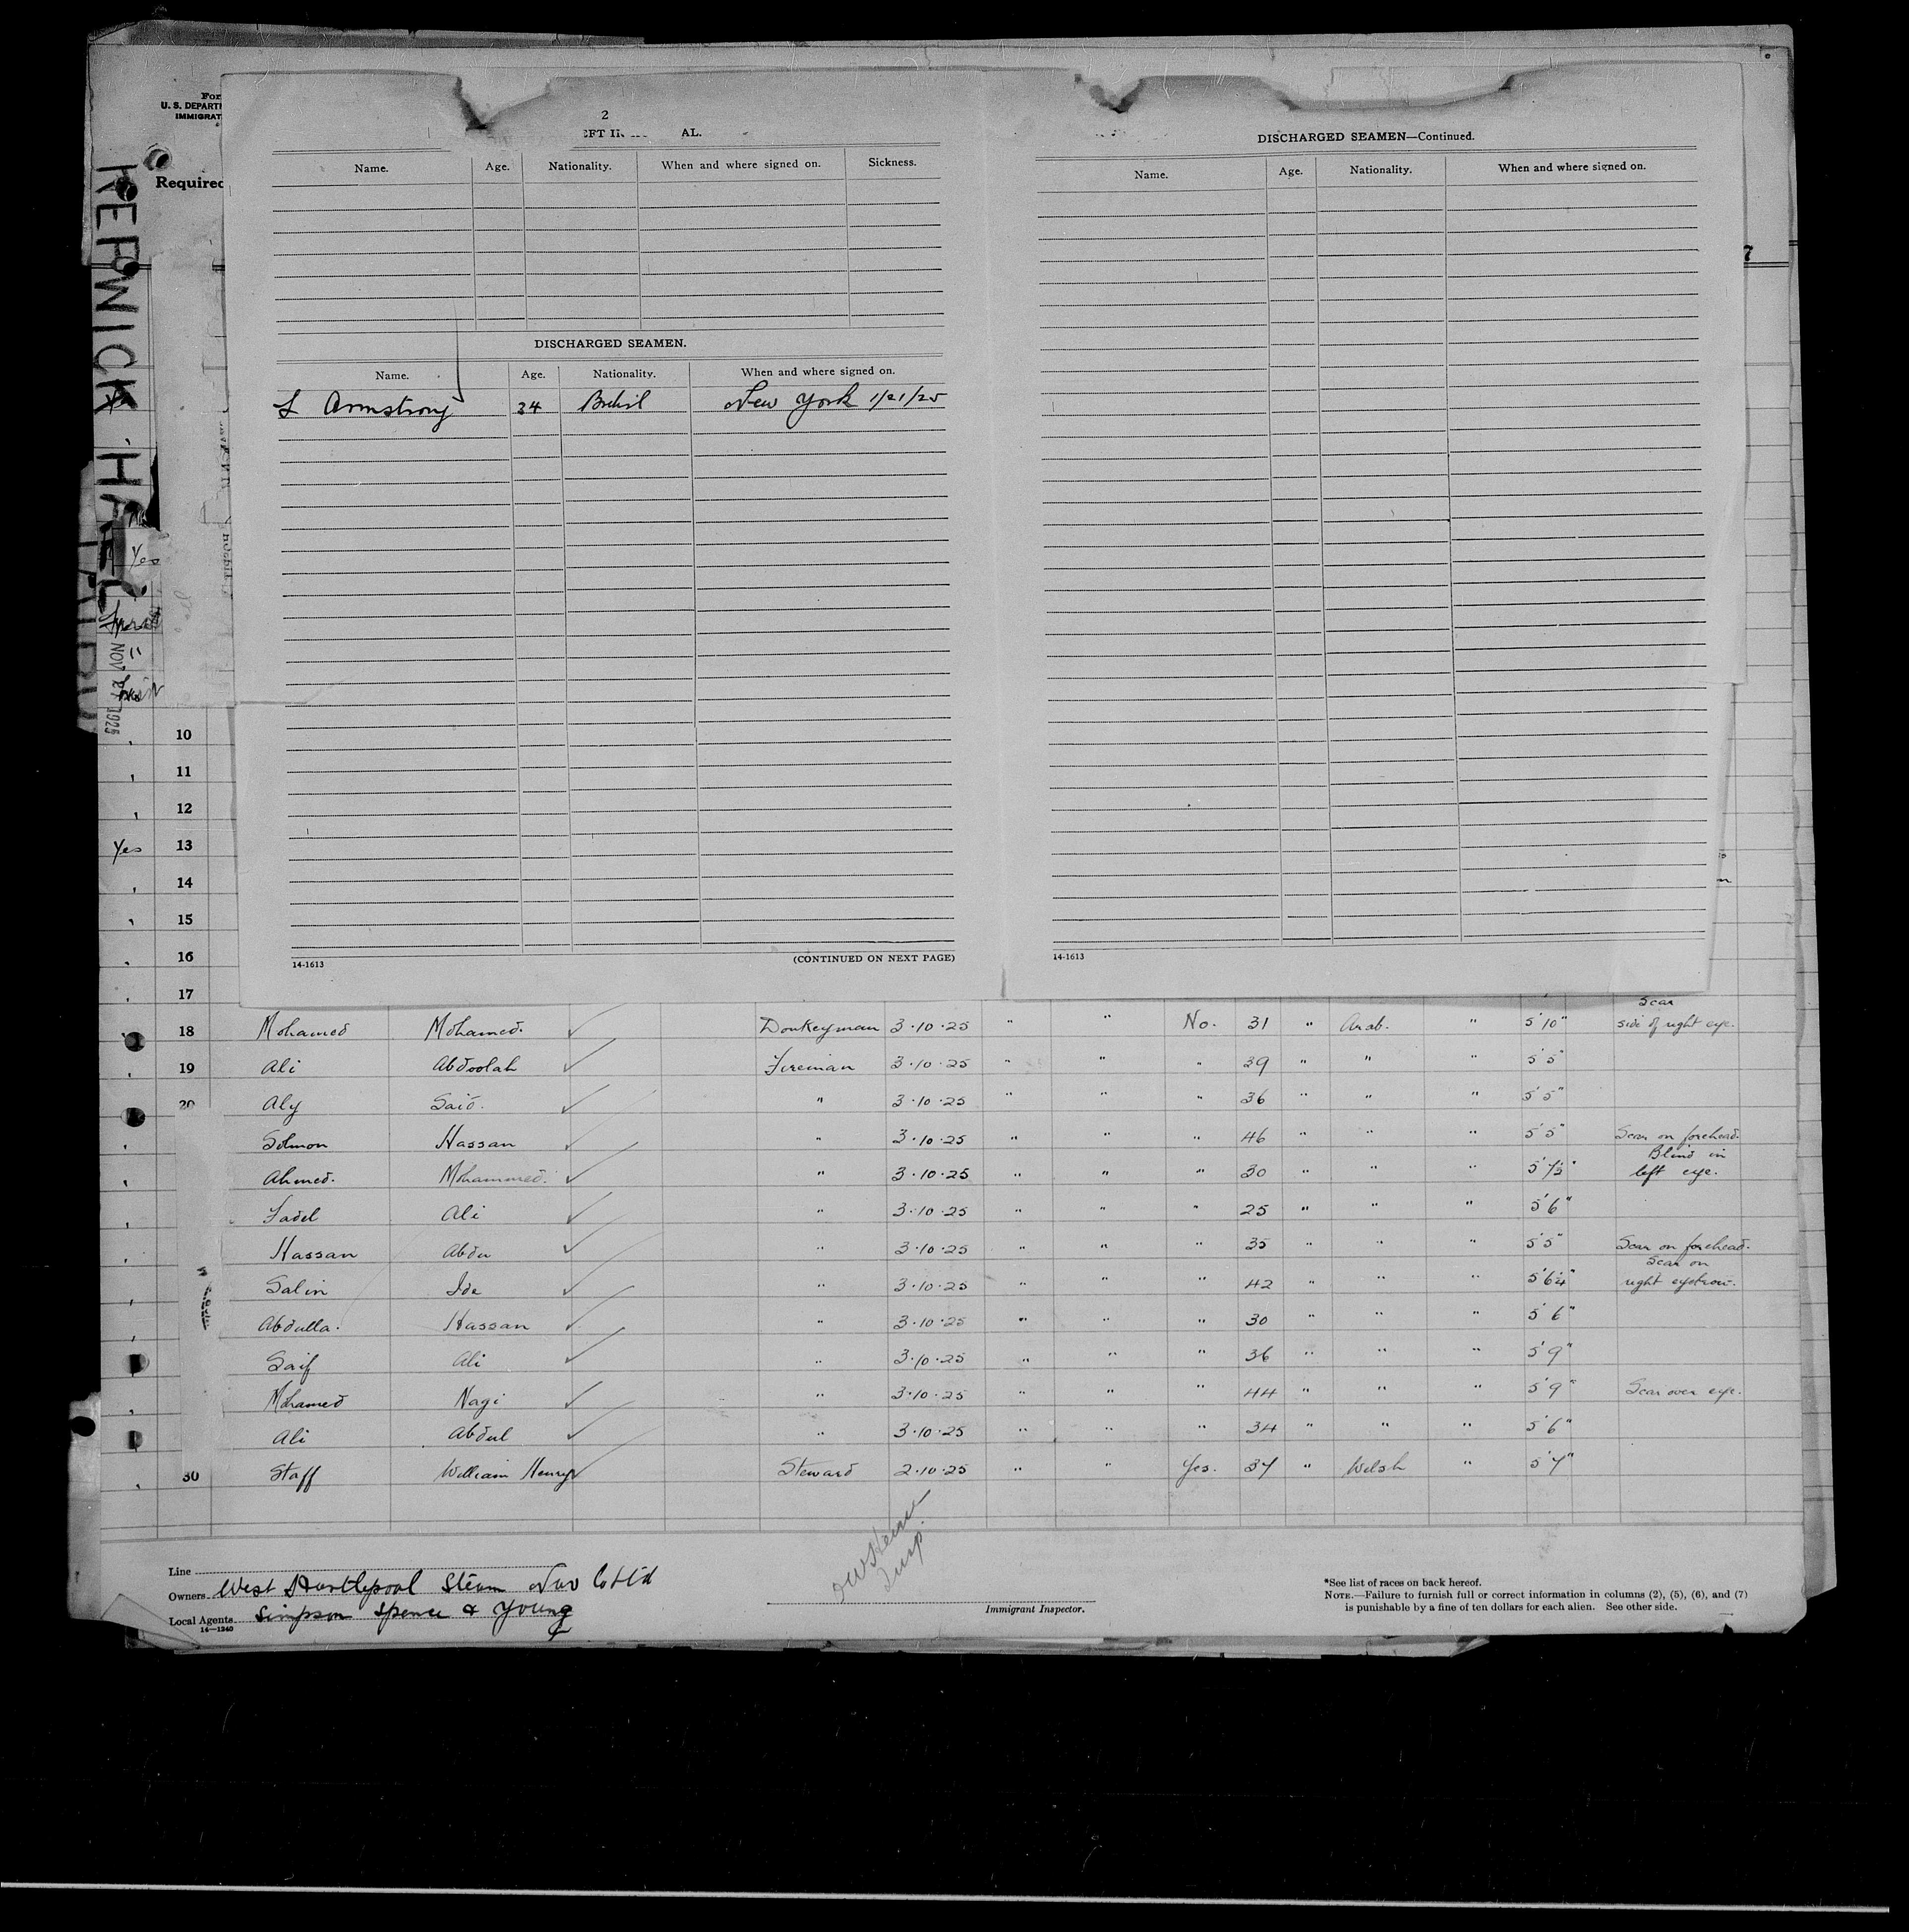 For
U. S. DEPARTM
IMMIGRAT
Required
2
EFT IN AL.
Name. Age. Nationality. When and where signed on. Sickness.
DISCHARGED SEAMEN.
Name. Age. Nationality. When and where signed on.
L Armstrong 34 British New York 1/21/25
14-1613 (CONTINUED ON NEXT PAGE)
DISCHARGED SEAMEN—Continued.
Name. Age. Nationality. When and where signed on.
14-1613
7
Yes
NOV 27 1925
10
11
12
Yes 13
14
15
16
17
Scar
18 Mohamed Mohamed. Donkeyman 3.10.25 " " No. 31 " Arab. " 5'10" side of right eye.
19 Ali Abdoolah Fireman 3.10.25 " " " 39 " " " 5'5"
20 Aly Said. " 3.10.25 " " " 36 " " " 5'5"
Solmon Hassan " 3.10.25 " " " 46 " " " 5'5" Scar on forehead.
Blind in
Ahmed. Mohammed. " 3.10.25 " " " 30 " " " left eye.
Fadel Ali " 3.10.25 " " " 25 " " " 5'6"
Hassan Abdu " 3.10.25 " " " 35 " " " 5'5" Scar on forehead.
Scar on
Salim Ide " 3.10.25 " " " 42 " " " right eyebrow.
Abdulla. Hassan " 3.10.25 " " " 30 " " " 5'6"
Saif Ali " 3.10.25 " " " 36 " " " 5'9"
Mohamed Nagi " 3.10.25 " " " 44 " " " 5'9" Scar over eye.
Ali Abdul " 3.10.25 " " " 34 " " " 5'6"
30 Staff William Henry Steward 2.10.25 " " Yes. 37 " Welsh " 5'7"
Line
Owners West Hartlepool Steam Nav Co Ltd
Local Agents Simpson Spence & Young
14—1240
Insp
Immigrant Inspector.
*See list of races on back hereof.
NOTE.—Failure to furnish full or correct information in columns (2), (5), (6), and (7)
is punishable by a fine of ten dollars for each alien. See other side.